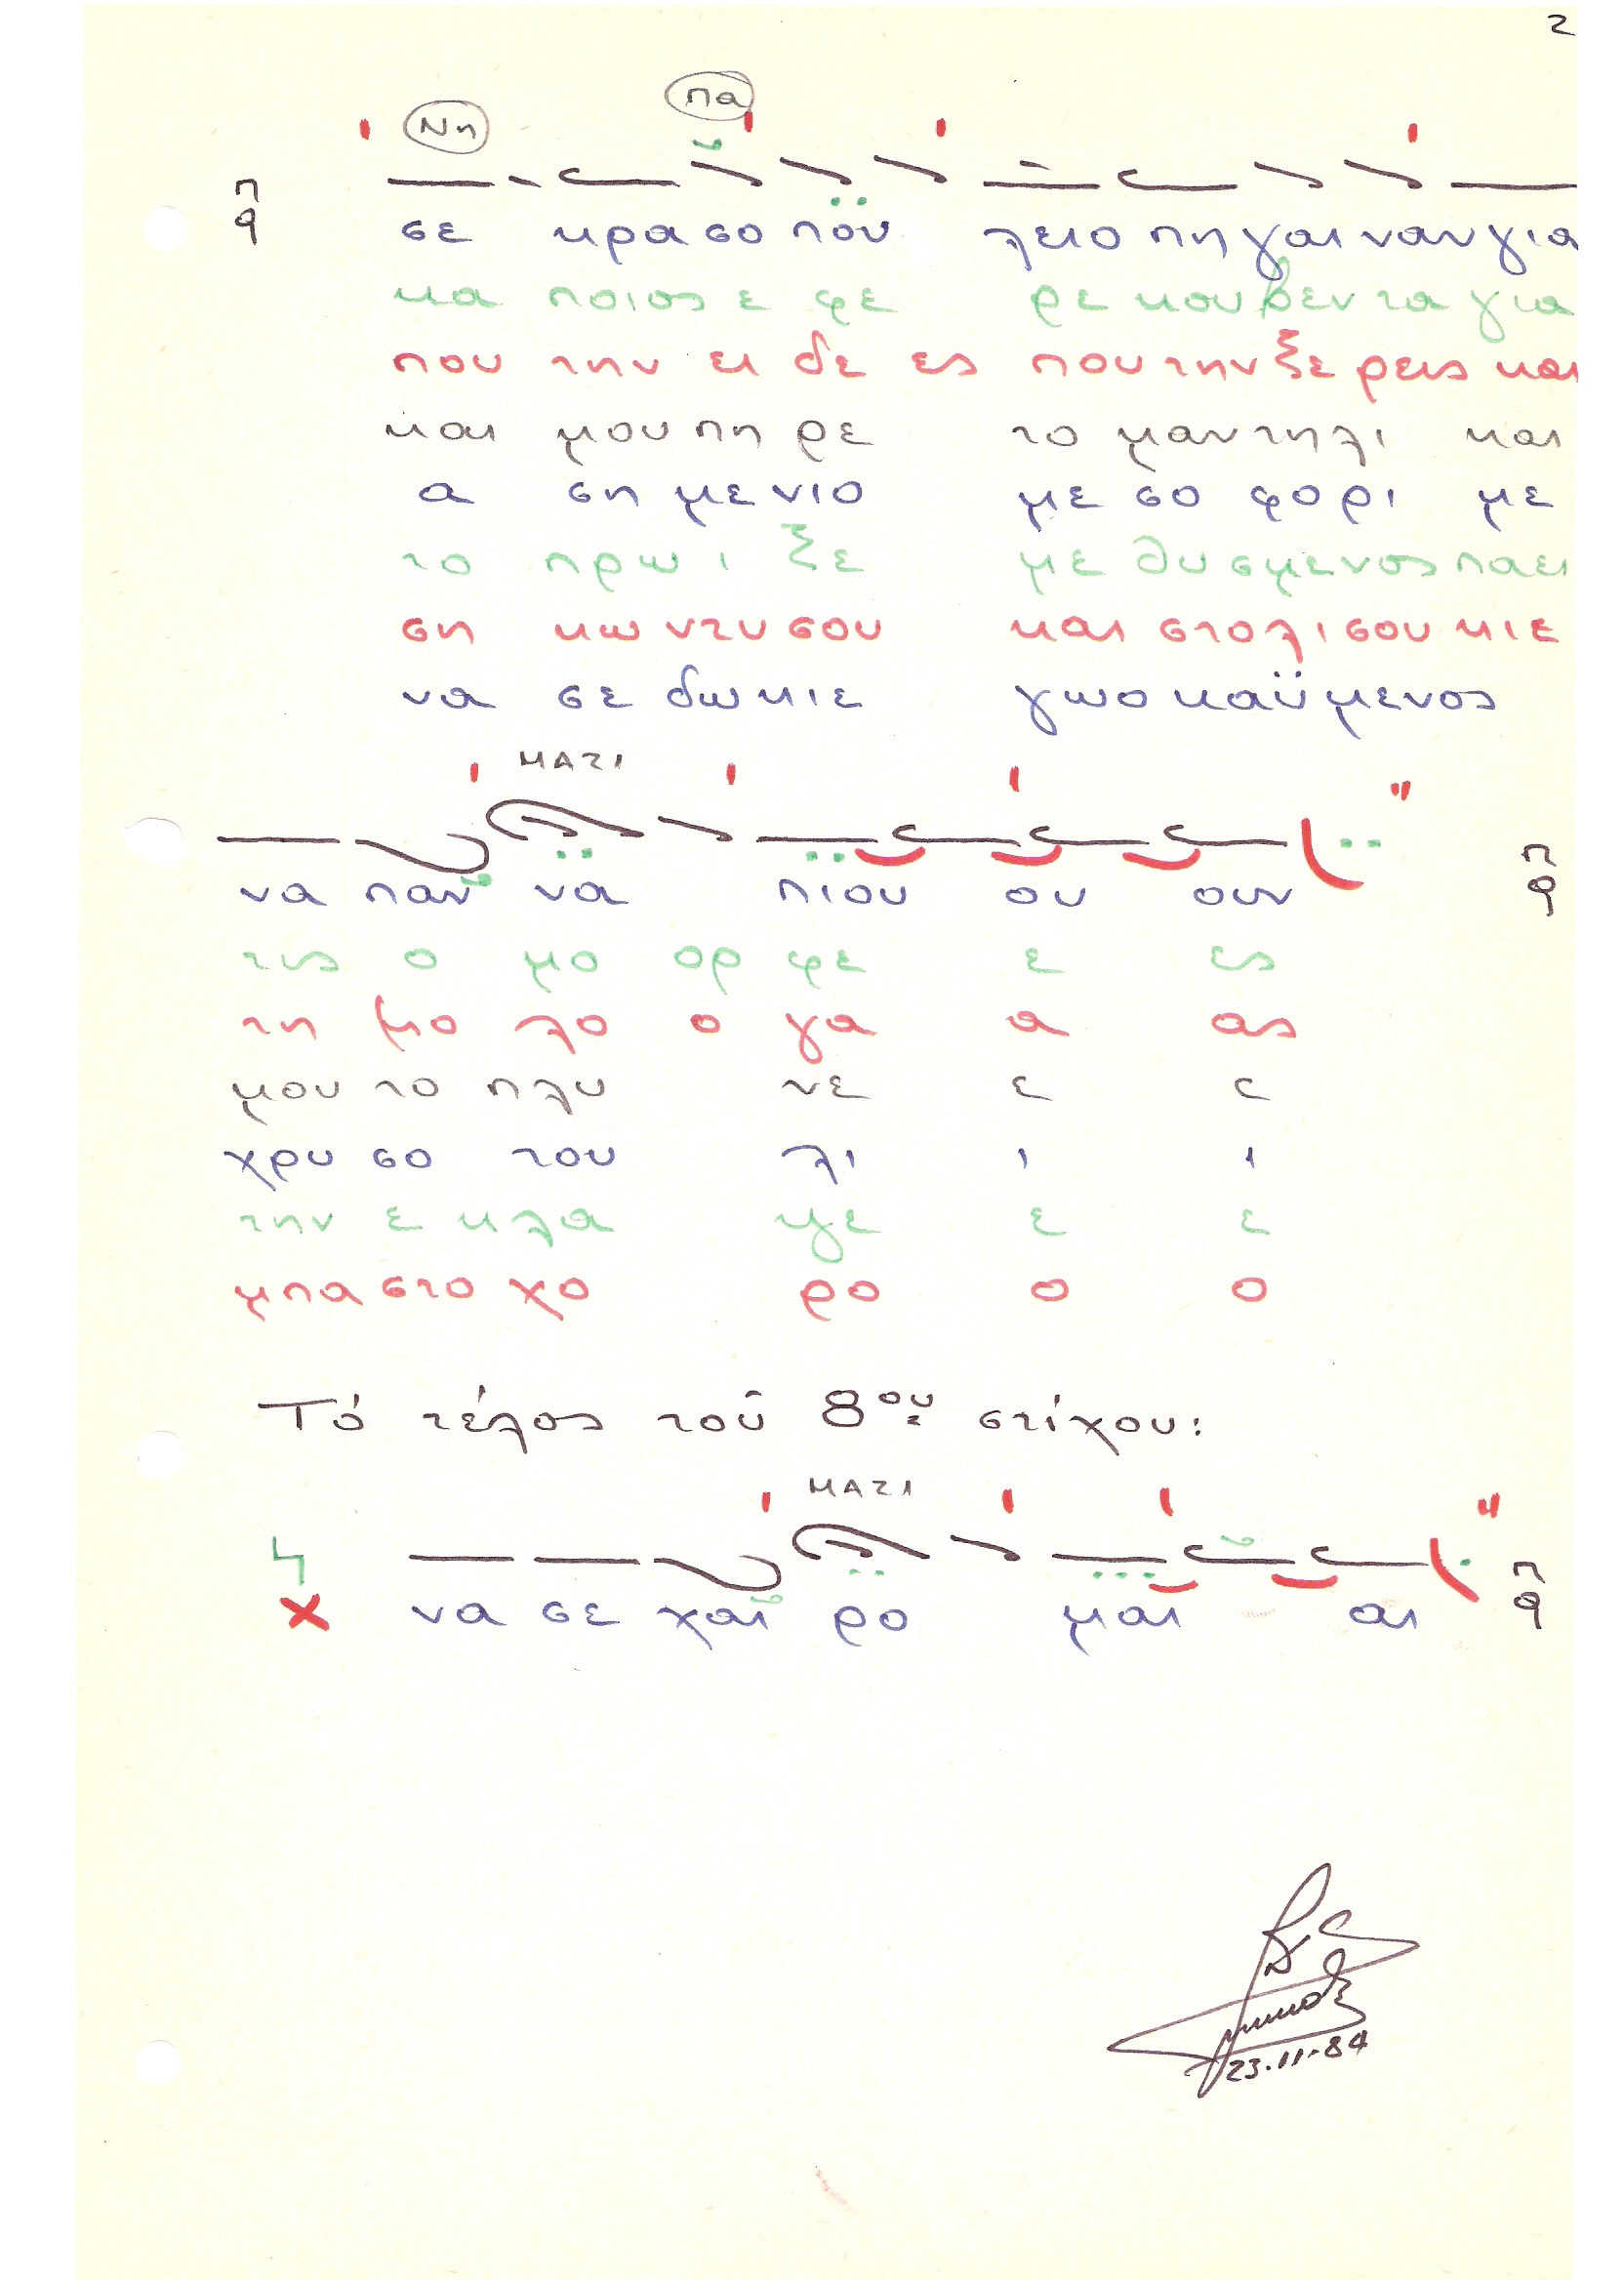 2
Νη πα
σε κρασοπου λειο πηγαιναν για
κα ποιος ε φε ρε κουβεντα για
που την ει δε ες που την ξε ρεις και
και μου πη ρε το μαντηλι και
α ση με νιο με σο φορι με
το πρω ι ξε με θυσμενος παει
ση κω ντυσου και στολισου κι ε
να σε δω κι ε γω ο καϋμενος
ΜΑΖΙ
να παν να πιου ου ουν
τις ο μο ορ φε ε ες
τη μο λο ο γα α ας
μου το πλυ νε ε ε
χρυ σο του λι ι ι
την ε κλα ψε ε ε
μπα στο χο ρο ο ο
Τό τέλος τοῦ 8ου στίχου:
ΜΑΖΙ
να σε χαι ρο μαι αι
23.11.84